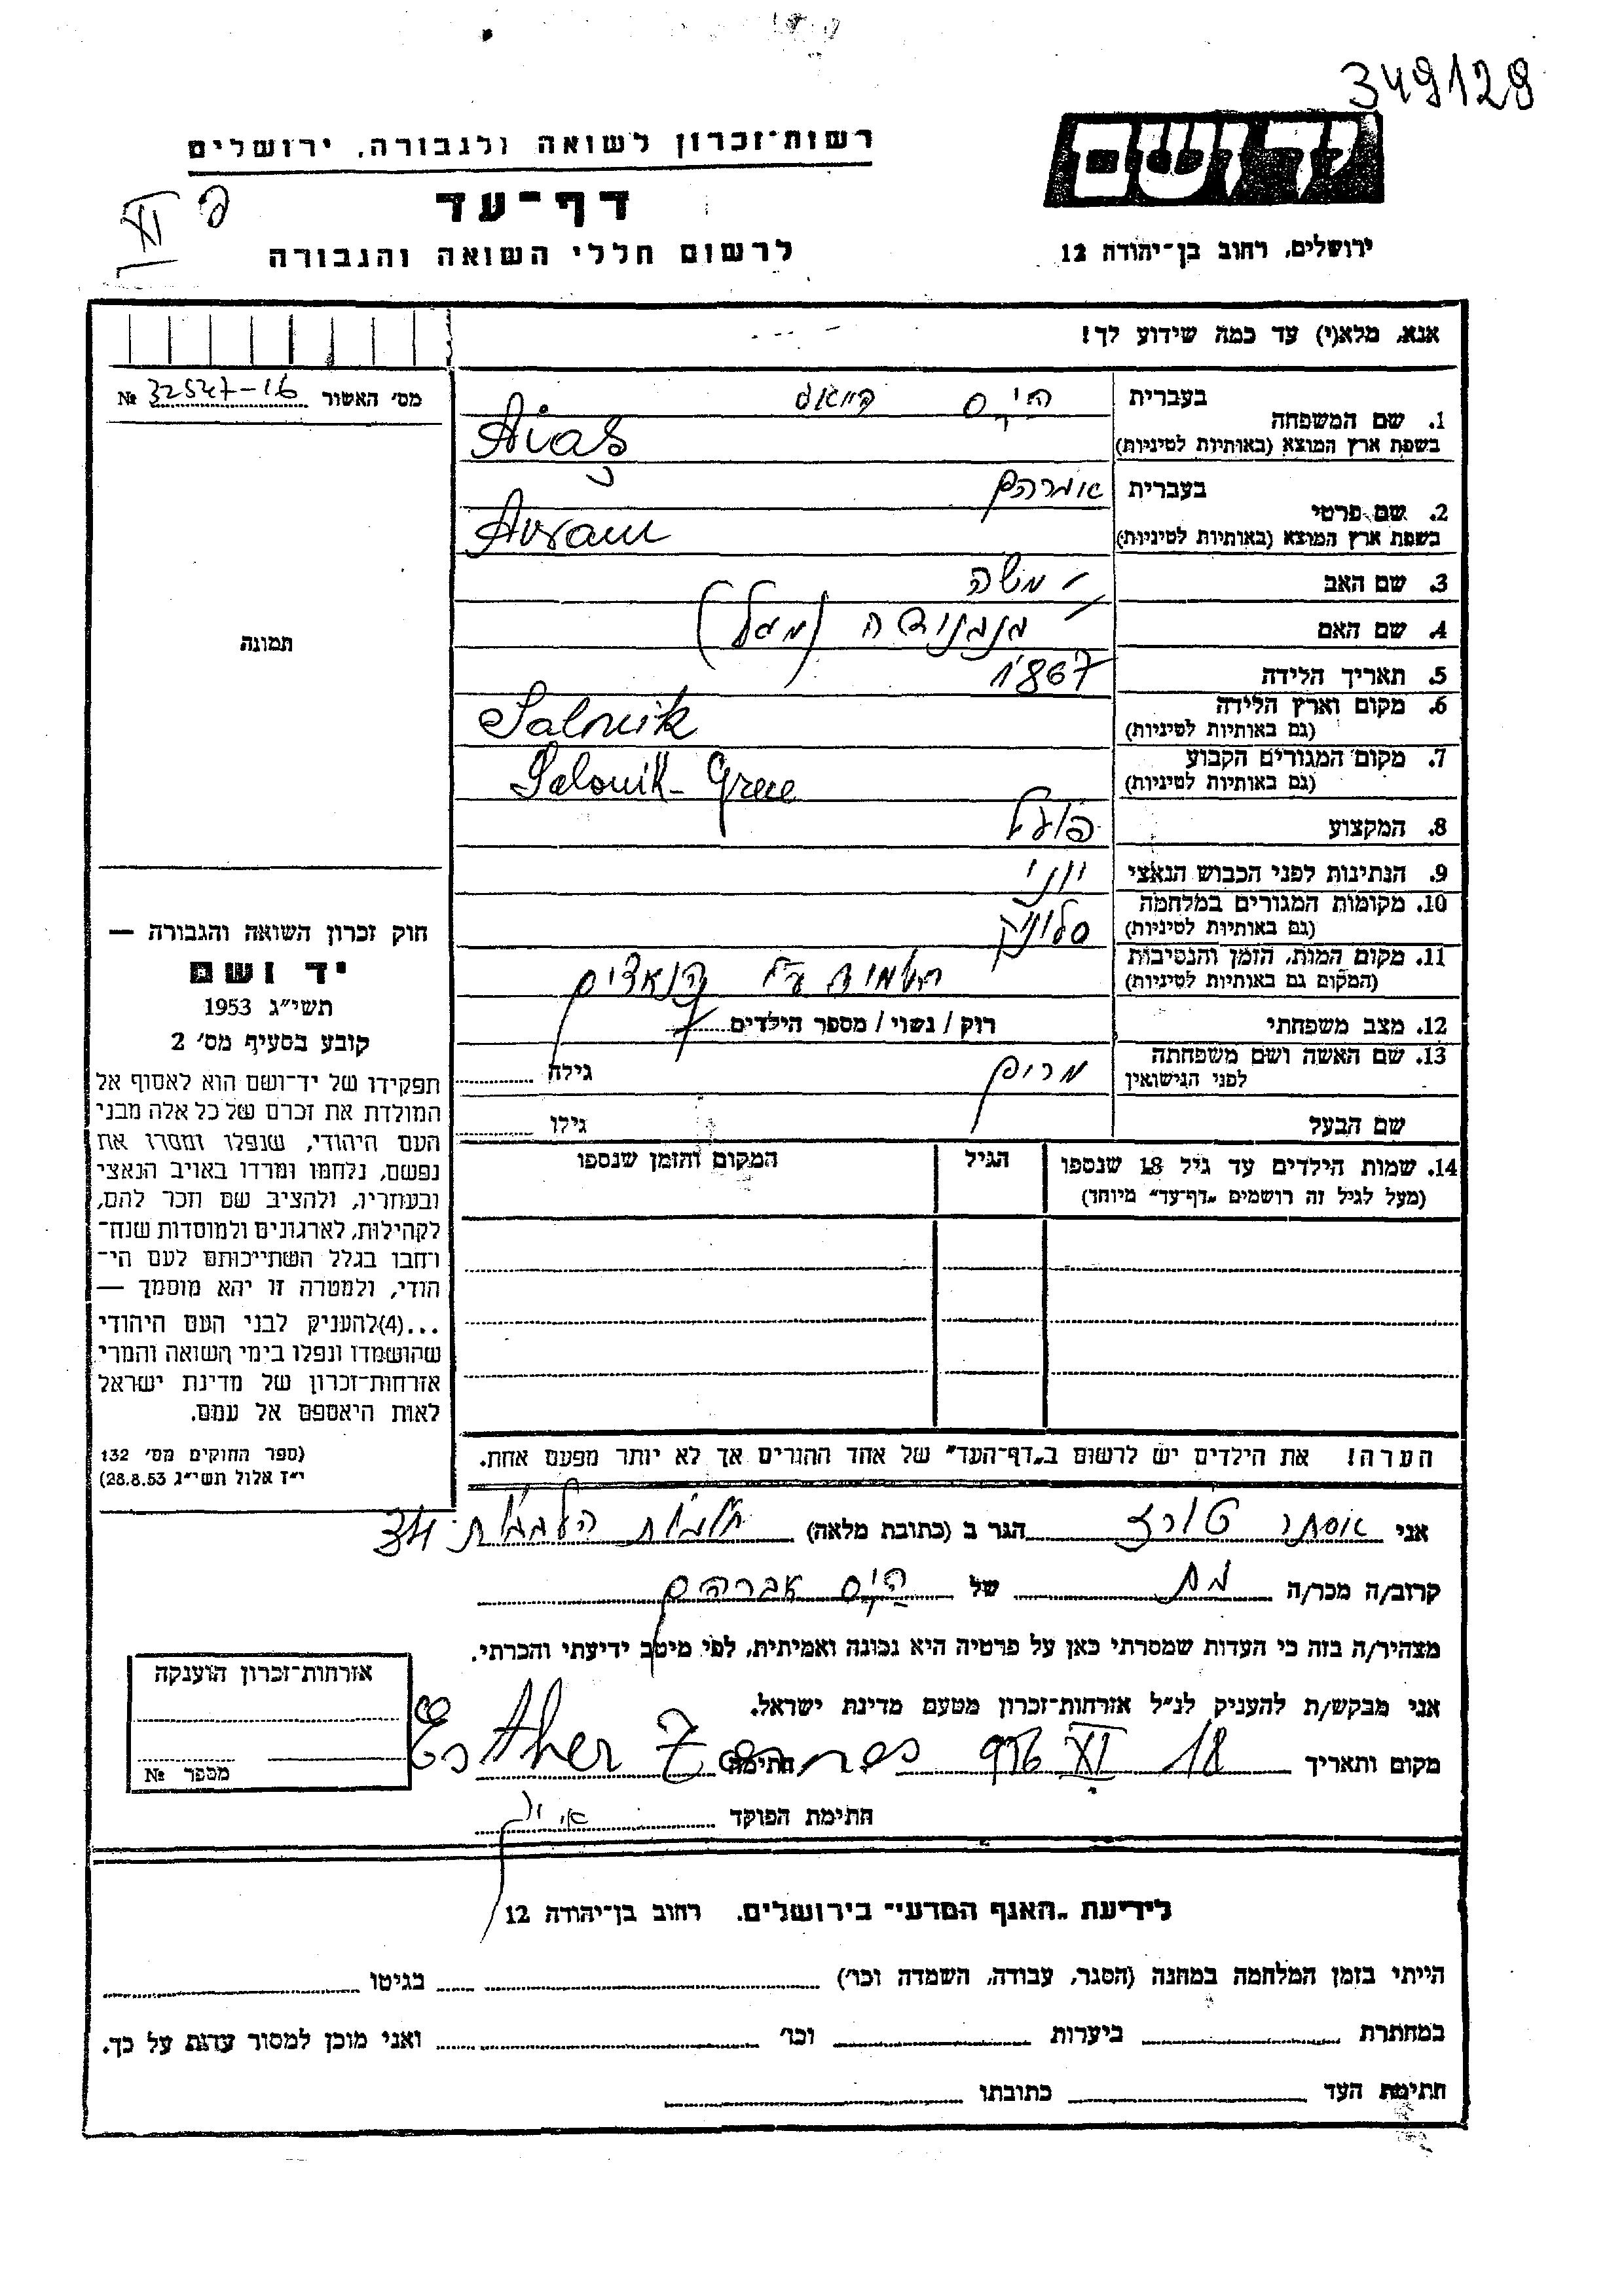 349128
רשות־זכרון לשואה ולגבורה, ירושלים
יד ושם
דף־עד
לרשום חללי השואה והגבורה
ירושלים, רחוב בן־יהודה 12
XI
אנא, מלא(י) עד כמה שידוע לך!
מס׳ האשור № 32547-16
תמונה
בעברית
1. שם המשפחה
בשפת ארץ המוצא (באותיות לטיניות)
Aiaş
בעברית
2. שם פרטי
בשפת ארץ המוצא (באותיות לטיניות) Avram
3. שם האב משה
4. שם האם
5. תאריך הלידה 1867
6. מקום וארץ הלידה
(גם באותיות לטיניות) Salonik
7. מקום המגורים הקבוע
(גם באותיות לטיניות) Salonik - Grece
8. המקצוע פועל
9. הנתינות לפני הכבוש הנאצי יווני
10. מקומות המגורים במלחמה
(גם באותיות לטיניות) סלוניק
11. מקום המות, הזמן והנסיבות
(המקום גם באותיות לטיניות) הנאצים
12. מצב משפחתי רוק / נשוי / מספר הילדים
13. שם האשה ושם משפחתה
לפני הנישואין מרים גילה
שם הבעל גילו
14. שמות הילדים עד גיל 18 שנספו הגיל המקום והזמן שנספו
(מעל לגיל זה רושמים „דף־עד״ מיוחד)
הערה! את הילדים יש לרשום ב„דף־העד״ של אחד ההורים אך לא יותר מפעם אחת.
חוק זכרון השואה והגבורה —
יד ושם
תשי״ג 1953
קובע בסעיף מס׳ 2
תפקידו של יד־ושם הוא לאסוף אל
המולדת את זכרם של כל אלה מבני
העם היהודי, שנפלו ומסרו את
נפשם, נלחמו ומרדו באויב הנאצי
ובעוזריו, ולהציב שם וזכר להם,
לקהילות, לארגונים ולמוסדות שנח־
רבו בגלל השתייכותם לעם הי־
הודי, ולמטרה זו יהא מוסמך —
...(4)להעניק לבני העם היהודי
שהושמדו ונפלו בימי השואה והמרי
אזרחות־זכרון של מדינת ישראל
לאות היאספם אל עמם.
(ספר החוקים מס׳ 132
י״ז אלול תשי״ג 28.8.53)
אני אסתר הגר ב (כתובת מלאה) 34
קרוב/ה מכר/ה בת של אברהם
מצהיר/ה בזה כי העדות שמסרתי כאן על פרטיה היא נכונה ואמיתית, לפי מיטב ידיעתי והכרתי.
אני מבקש/ת להעניק לנ״ל אזרחות־זכרון מטעם מדינת ישראל.
מקום ותאריך 18 XI 956 חתימה Esther
חתימת הפוקד
אזרחות־זכרון הוענקה
מספר №
לידיעת „האגף המדעי״ בירושלים, רחוב בן־יהודה 12
הייתי בזמן המלחמה במחנה (הסגר, עבודה, השמדה וכו׳) בגיטו
במחתרת ביערות וכו׳ ואני מוכן למסור עדות על כך.
חתימת העד כתובתו